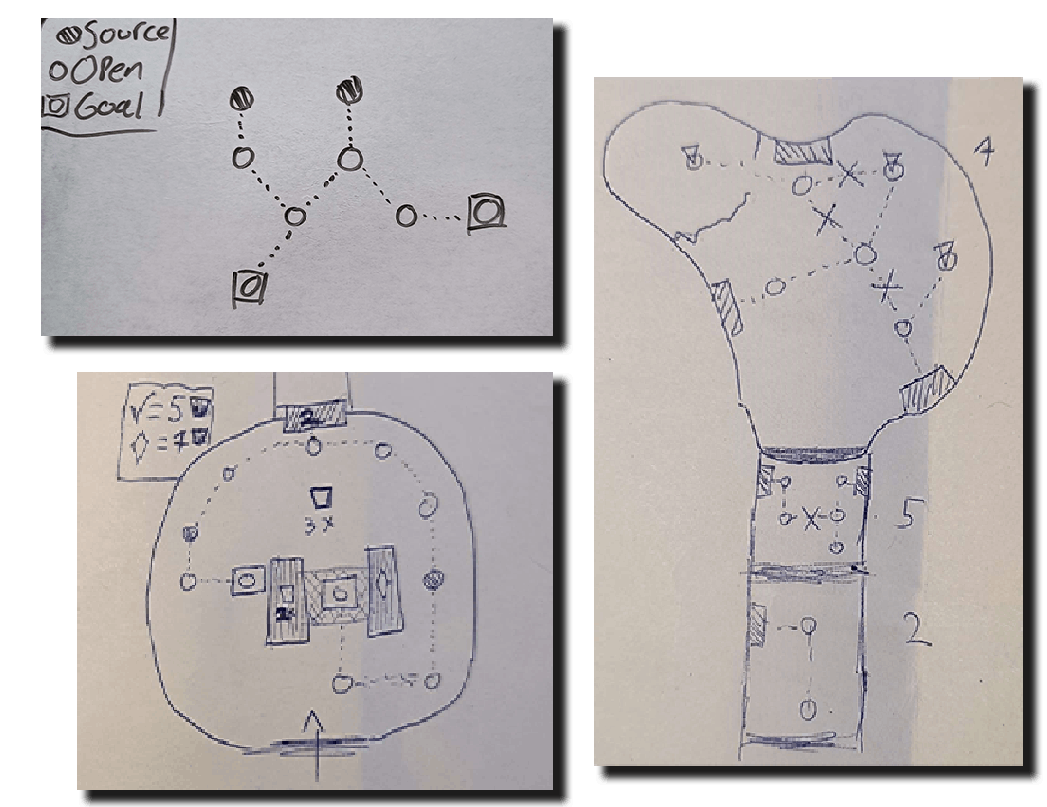 Source
Open
Goal
√=5
3x
4
5
2